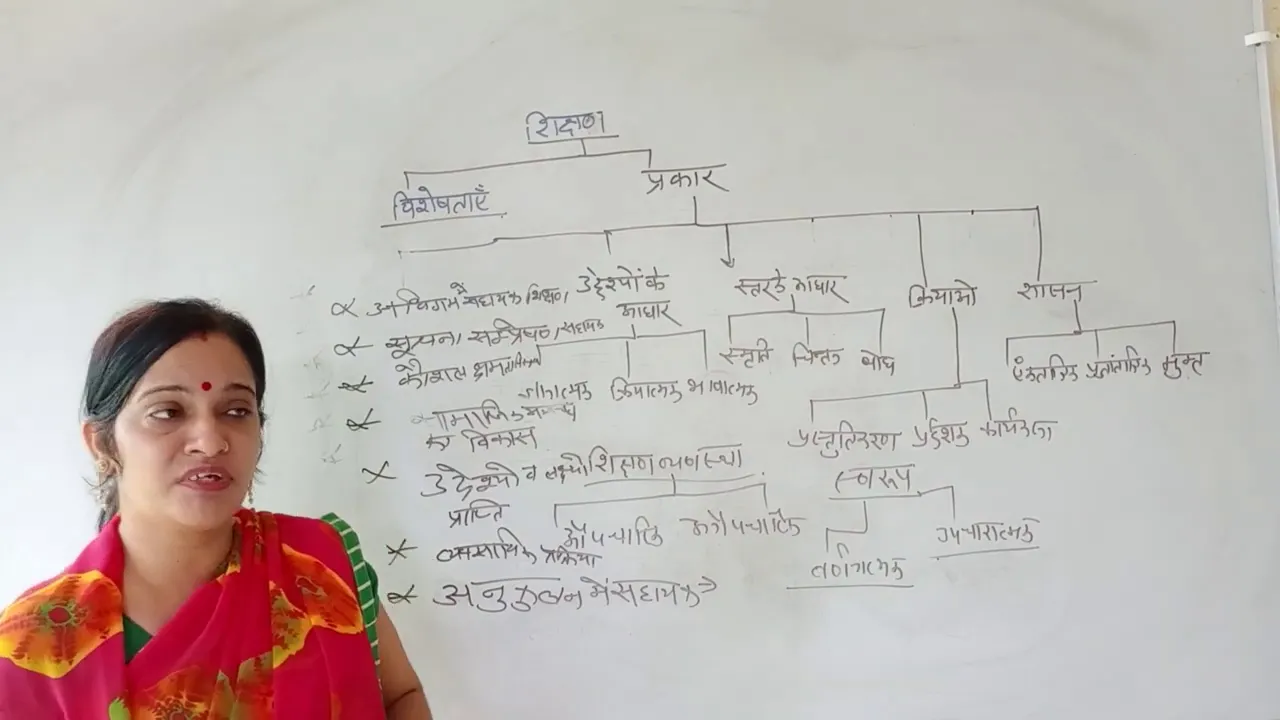 शिक्षण
विशेषताएँ
प्रकार
अधिगम में सहायक शिक्षण
सूचना सम्प्रेषण सहायक
कौशल
सामाजिक
का विकास
उद्देश्यो व लक्ष्यो
प्राप्ति
व्यवसायिक प्रक्रिया
अनुकुलन में सहायक
उद्देश्यों के
आधार
ज्ञानात्मक क्रियात्मक भावात्मक
स्तर के आधार
स्मृति चिन्तन बोध
क्रियाओ
प्रस्तुतिकरण प्रर्दशन कार्यकला
शासन
एकतांत्रिक प्रजातांत्रिक मुक्त
शिक्षण व्यवस्था
औपचारिक अनौपचारिक
स्वरूप
वर्णनात्मक
उपचारात्मक